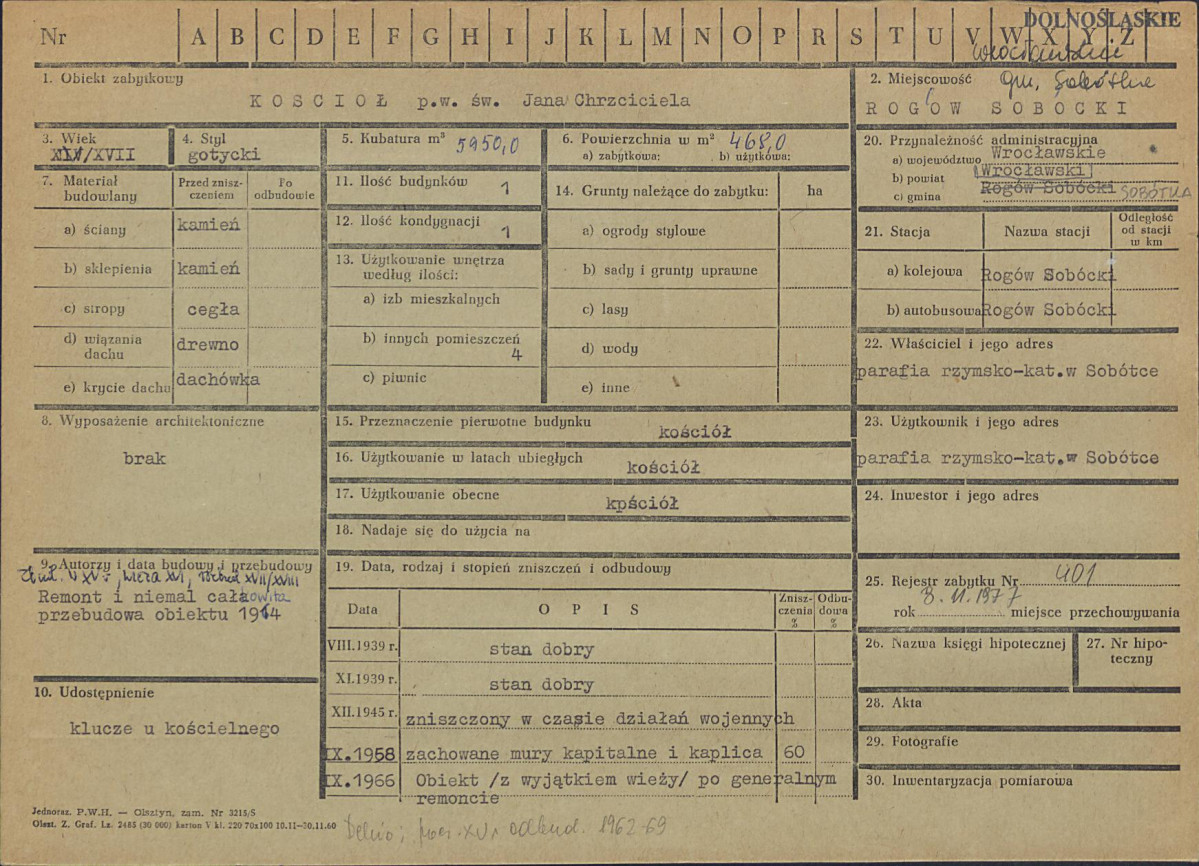 DOLNOŚLĄSKIE
Nr A B C D E F G H I J K L M N O P R S T U V W X Y Z
1. Obiekt zabytkowy
KOSCIOŁ p.w. św. Jana Chrzciciela
2. Miejscowość gm. Sobótka
ROGÓW SOBOCKI
3. Wiek
XIV/XVII
4. Styl
gotycki
5. Kubatura m³ 5950,0
6. Powierzchnia w m² 468,0
a) zabytkowa: b) użytkowa:
7. Materiał budowlany
Przed znisz-
czeniem
Po
odbudowie
a) ściany kamień
b) sklepienia kamień
c) stropy cegła
d) wiązania
dachu drewno
e) krycie dachu dachówka
8. Wyposażenie architektoniczne
brak
9. Autorzy i data budowy i przebudowy
Remont i niemal całkowita
przebudowa obiektu 1914
10. Udostępnienie
klucze u kościelnego
11. Ilość budynków 1
12. Ilość kondygnacji 1
13. Użytkowanie wnętrza
według ilości:
a) izb mieszkalnych
b) innych pomieszczeń
4
c) piwnic
14. Grunty należące do zabytku: ha
a) ogrody stylowe
b) sady i grunty uprawne
c) lasy
d) wody
e) inne
15. Przeznaczenie pierwotne budynku
kościół
16. Użytkowanie w latach ubiegłych
kościół
17. Użytkowanie obecne
kpściół
18. Nadaje się do użycia na
19. Data, rodzaj i stopień zniszczeń i odbudowy
Data OPIS Znisz-
czenia
% Odbu-
dowa
%
VIII.1939 r. stan dobry
XI.1939 r. stan dobry
XII.1945 r. zniszczony w czasie działań wojennych
IX.1958 zachowane mury kapitalne i kaplica 60
IX.1966 Obiekt /z wyjątkiem wieży/ po generalnym
remoncie
20. Przynależność administracyjna
a) województwo Wrocławskie
b) powiat [Wrocławski]
c) gmina Rogów Sobócki SOBÓTKA
21. Stacja Nazwa stacji Odległość
od stacji
w km
a) kolejowa Rogów Sobócki
b) autobusowa Rogów Sobócki
22. Właściciel i jego adres
parafia rzymsko-kat.w Sobótce
23. Użytkownik i jego adres
parafia rzymsko-kat.w Sobótce
24. Inwestor i jego adres
25. Rejestr zabytku Nr 401
rok 3.11.1977 miejsce przechowywania
26. Nazwa księgi hipotecznej
27. Nr hipo-
teczny
28. Akta
29. Fotografie
30. Inwentaryzacja pomiarowa
Jednoraz. P.W.H. — Olsztyn, zam. Nr 3215/S
Olszt. Z. Graf. Lz. 2485 (30 000) karton V kl. 220 70x100 10.11—30.11.60
odbud. 1962-69